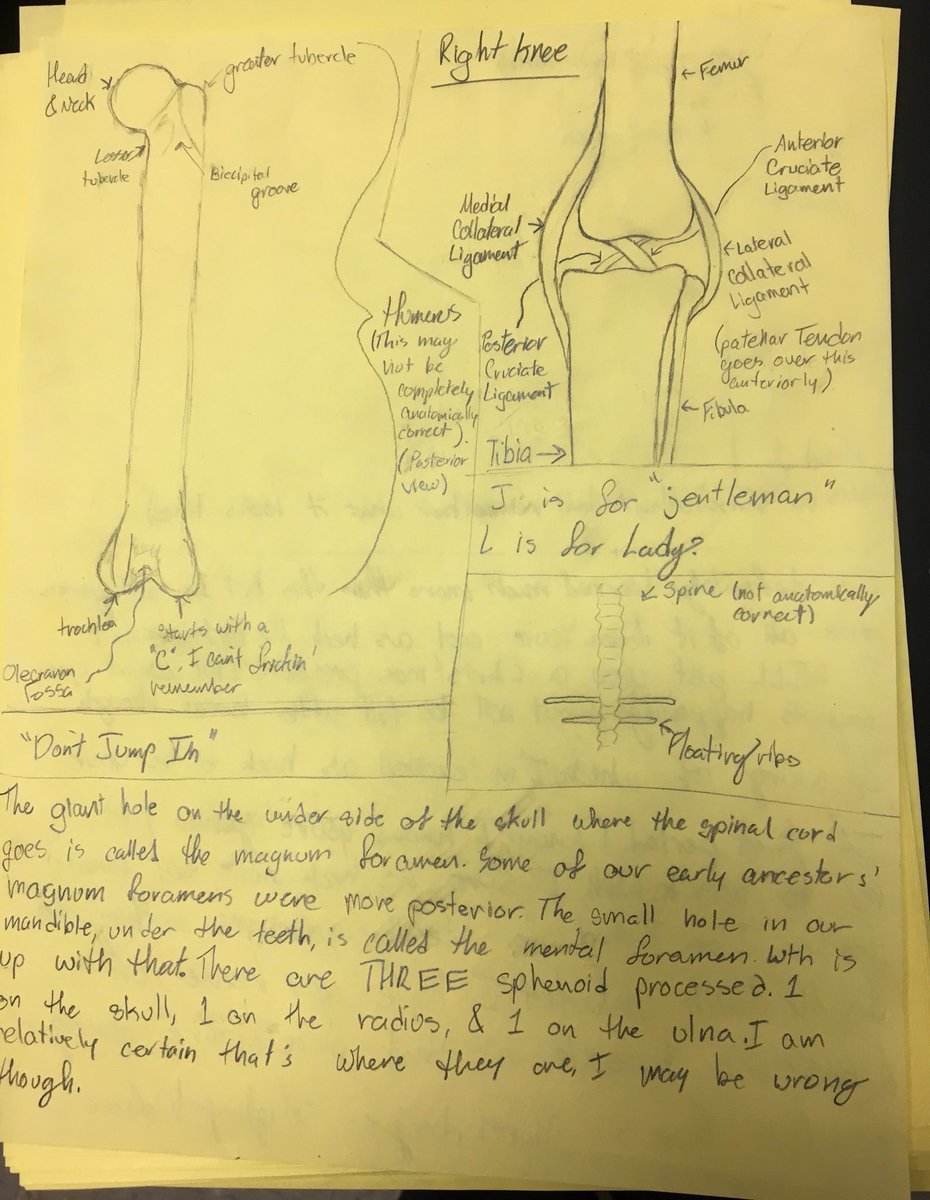 Head
& Neck
greater tubercle
Lesser
tubercle
Bicipital
groove
Humerus
(This may
not be
completely
anatomically
correct).
(Posterior
view)
trochlea
Olecranon
Fossa
Starts with a
"C", I can't frickin'
remember
Right knee
Femur
Anterior
Cruciate
Ligament
Medial
Collateral
Ligament
Lateral
Collateral
Ligament
(patellar Tendon
goes over this
anteriorly)
Posterior
Cruciate
Ligament
Fibula
Tibia
J is for "jentleman"
L is for Lady?
Spine (not anatomically
correct)
Floating ribs
"Don't Jump In"
The giant hole on the under side of the skull where the spinal cord
goes is called the magnum foramen. Some of our early ancestors'
magnum foramens were more posterior. The small hole in our
mandible, under the teeth, is called the mental foramen. Wth is
up with that. There are THREE sphenoid processed. 1
on the skull, 1 on the radius, & 1 on the ulna. I am
relatively certain that's where they are, I may be wrong
though.